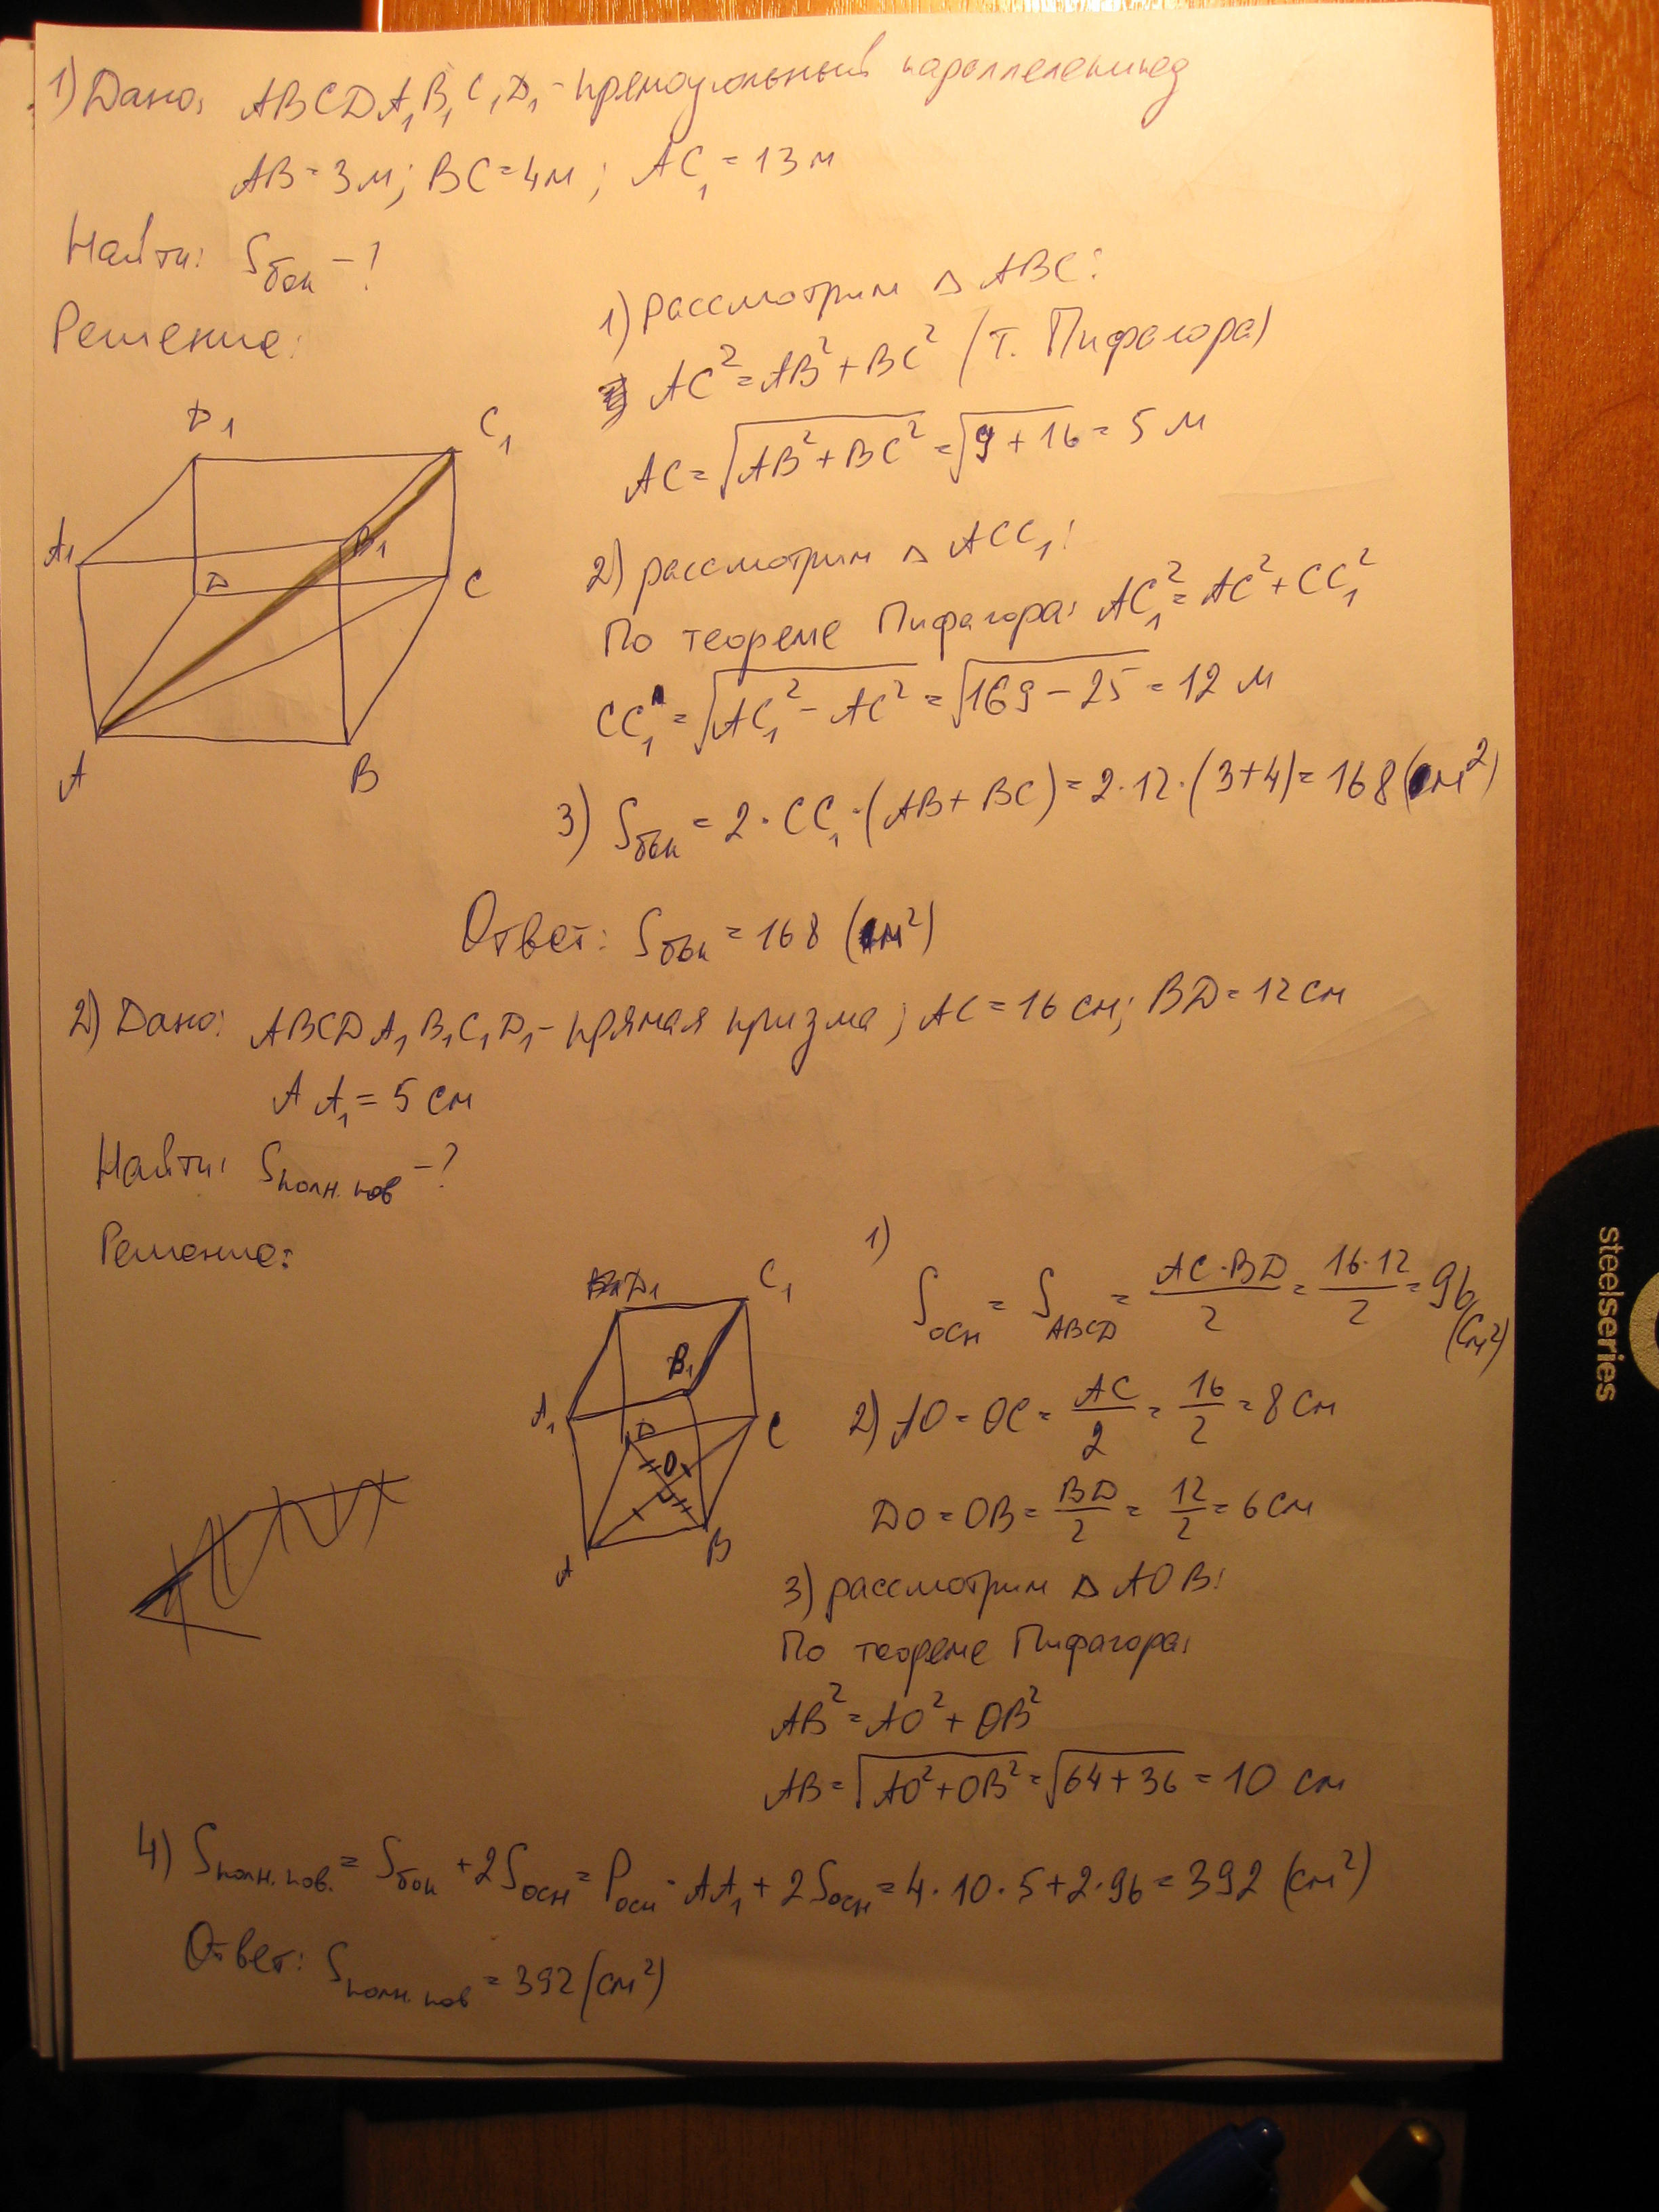 1) Дано: ABCDA₁B₁C₁D₁ - прямоугольный параллелепипед
AB = 3 м; BC = 4 м; AC₁ = 13 м
Найти: Sбок - ?
Решение:
1) Рассмотрим △ ABC:
AC² = AB² + BC² (т. Пифагора)
AC = √(AB² + BC²) = √(9 + 16) = 5 м
D1
C₁
A₁
B₁
D
C
A
B
2) рассмотрим △ ACC₁:
По теореме Пифагора: AC₁² = AC² + CC₁²
CC₁ = √(AC₁² - AC²) = √(169 - 25) = 12 м
3) Sбок = 2 · CC₁ · (AB + BC) = 2 · 12 · (3 + 4) = 168 (м²)
Ответ: Sбок = 168 (м²)
2) Дано: ABCDA₁B₁C₁D₁ - прямая призма; AC = 16 см; BD = 12 см
AA₁ = 5 см
Найти: Sполн. пов - ?
Решение:
1)
Sосн = S_ABCD = AC·BD/2 = 16·12/2 = 96 (см²)
D1
C₁
B₁
A₁
D
C
O
A
B
2) AO = OC = AC/2 = 16/2 = 8 см
DO = OB = BD/2 = 12/2 = 6 см
3) рассмотрим △ AOB:
По теореме Пифагора:
AB² = AO² + OB²
AB = √(AO² + OB²) = √(64 + 36) = 10 см
4) Sполн. пов. = Sбок + 2Sосн = Pосн · AA₁ + 2Sосн = 4 · 10 · 5 + 2 · 96 = 392 (см²)
Ответ: Sполн. пов = 392 (см²)
steelseries